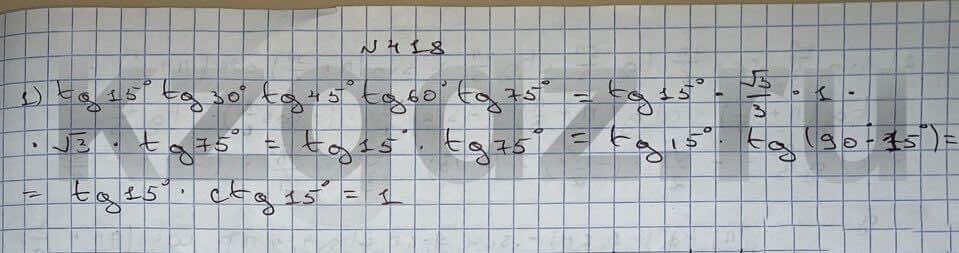 N 418
1) tg 15° tg 30° tg 45° tg 60° tg 75° = tg 15° · √3/3 · 1 ·
· √3 · tg 75° = tg 15° · tg 75° = tg 15° · tg (90° - 15°) =
= tg 15° · ctg 15° = 1
kzgdz.ru